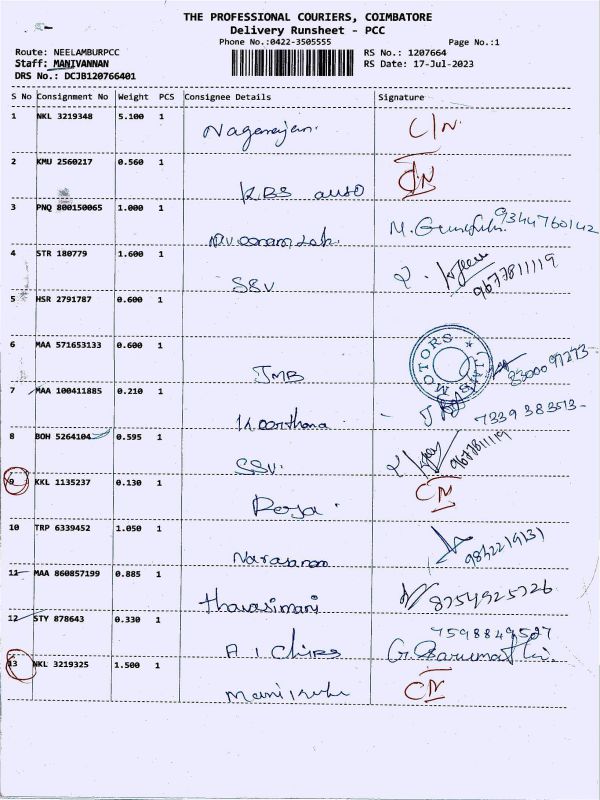 THE PROFESSIONAL COURIERS, COIMBATORE
Delivery Runsheet - PCC
Phone No.:0422-3505555 Page No.:1
Route: NEELAMBURPCC RS No.: 1207664
Staff: MANIVANNAN RS Date: 17-Jul-2023
DRS No.: DCJB120766401
S No Consignment No Weight PCS Consignee Details Signature
1 NKL 3219348 5.100 1
Nagarajan. C/N.
2 KMU 2560217 0.560 1
KBS auto CN
3 PNQ 800150065 1.000 1
M. 9344760142
4 STR 180779 1.600 1
SSV 9677811119
5 HSR 2791787 0.600 1
6 MAA 571653133 0.600 1
JMB MOTORS
7 MAA 100411885 0.210 1
Keerthana
8 BOH 5264104 0.595 1
SSV. 9677811119
9 KKL 1135237 0.130 1
Roja. CN
10 TRP 6339452 1.050 1
11 MAA 860857199 0.885 1
Thavasimani 8754925726
12 STY 878643 0.330 1
7598849527
A 1 Chips G.
13 NKL 3219325 1.500 1
CN